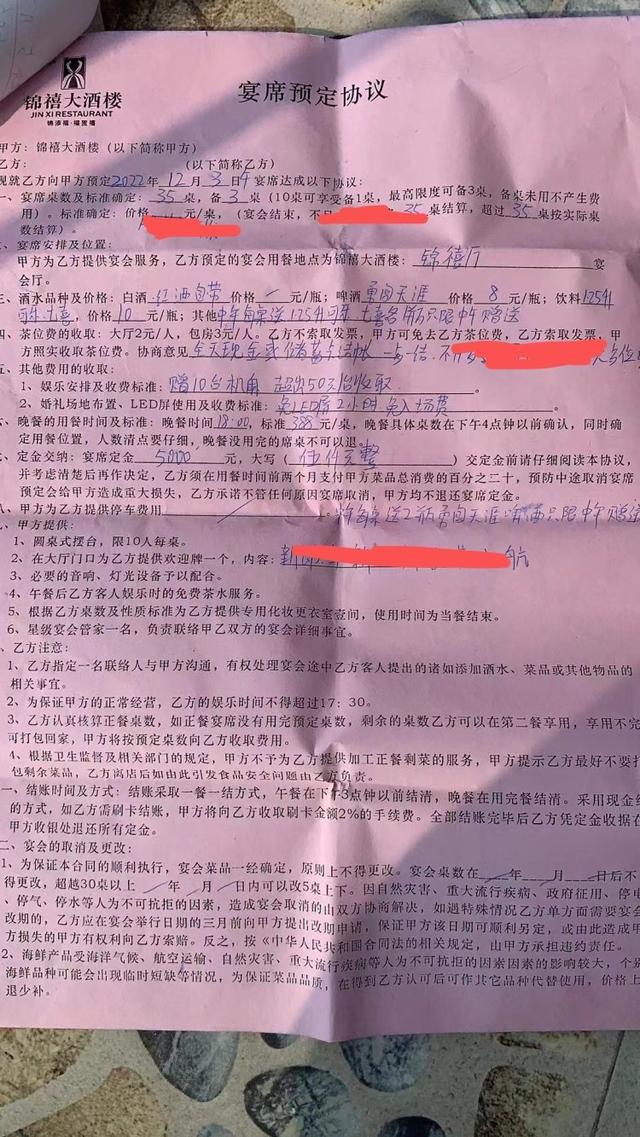 锦禧大酒楼
JIN XI RESTAURANT
锦添禧·福贺禧
宴席预定协议
甲方：锦禧大酒楼（以下简称甲方）
乙方： （以下简称乙方）
现就乙方向甲方预定2022年12月3日 宴席达成以下协议：
一、宴席桌数及标准确定：35桌，备3桌（10桌可享受备1桌，最高限度可备3桌，备桌未用不产生费
用）。标准确定：价格 元/桌，（宴会结束，不足 35桌结算，超过35桌按实际桌
数结算）。
、宴席安排及位置：
甲方为乙方提供宴会服务，乙方预定的宴会用餐地点为锦禧大酒楼：锦禧厅 宴
会厅。
三、酒水品种及价格：白酒 红酒自带 价格 一 元/瓶；啤酒 勇闯天涯 价格 8 元/瓶；饮料1.25升
价格 10 元/瓶；其他 中午每桌送1.25升 只限中午赠送
四、茶位费的收取：大厅2元/人，包房3元/人。乙方不索取发票，甲方可免去乙方茶位费，乙方索取发票，甲
方照实收取茶位费。协商意见 全天现金或储蓄卡结帐 一与一结.
五、其他费用的收取：
1、娱乐安排及收费标准：赠10台机麻 超出50元/台收取 。
2、婚礼场地布置、LED屏使用及收费标准：免LED屏2小时 免入场费
、晚餐的用餐时间及标准：晚餐时间18:00，标准388元/桌，晚餐具体桌数在下午4点钟以前确认，同时确
定用餐位置，人数清点要仔细，晚餐没用完的席桌不可以退。
、定金交纳：宴席定金 5000 元，大写（ 伍仟元整 ）交定金前请仔细阅读本协议，
并考虑清楚后再作决定，乙方须在用餐时间前两个月支付甲方菜品总消费的百分之二十，预防中途取消宴席
预定会给甲方造成重大损失，乙方承诺不管任何原因宴席取消，甲方均不退还宴席定金。
八、甲方为乙方提供停车费用 每桌送2瓶勇闯天涯 只限中午赠送
、甲方提供：
1、圆桌式摆台，限10人每桌。
2、在大厅门口为乙方提供欢迎牌一个，内容：新 航
3、必要的音响、灯光设备予以配合。
4、午餐后乙方客人娱乐时的免费茶水服务。
5、根据乙方桌数及性质标准为乙方提供专用化妆更衣室壹间，使用时间为当餐结束。
6、星级宴会管家一名，负责联络甲乙双方的宴会详细事宜。
、乙方注意：
1、乙方指定一名联络人与甲方沟通，有权处理宴会途中乙方客人提出的诸如添加酒水、菜品或其他物品的
相关事宜。
2、为保证甲方的正常经营，乙方的娱乐时间不得超过17：30。
3、乙方认真核算正餐桌数，如正餐宴席没有用完预定桌数，剩余的桌数乙方可以在第二餐享用，享用不完
可打包回家，甲方将按预定桌数向乙方收取费用。
4、根据卫生监督及相关部门的规定，甲方不予为乙方提供加工正餐剩菜的服务，甲方提示乙方最好不要打
包剩余菜品，乙方离店后如由此引发食品安全问题由乙方负责。
一、结账时间及方式：结账采取一餐一结方式，午餐在下午3点钟以前结清，晚餐在用完餐结清。采用现金结
的方式，如乙方需刷卡结账，甲方将向乙方收取刷卡金额2%的手续费。全部结账完毕后乙方凭定金收据在
甲方收银处退还所有定金。
二、宴会的取消及更改：
1、为保证本合同的顺利执行，宴会菜品一经确定，原则上不得更改。宴会桌数在 年 月 日后不
得更改，超越30桌以上 年 月 日内可以改5桌上下。因自然灾害、重大流行疾病、政府征用、停电
、停气、停水等人为不可抗拒的因素，造成宴会取消的由双方协商解决，如遇特殊情况乙方单方面需要宴会
改期的，乙方应在宴会举行日期的三月前向甲方提出改期申请，保证甲方该日期可顺利另定，或由此造成甲
方损失的甲方有权利向乙方索赔。反之，按《中华人民共和国合同法的相关规定，由甲方承担违约责任。
2、海鲜产品受海洋气候、航空运输、自然灾害、重大流行疾病等人为不可抗拒的因素因素的影响较大，个别
海鲜品种可能会出现临时短缺等情况，为保证菜品品质，在得到乙方认可后可作其它品种代替使用，价格上
退少补。